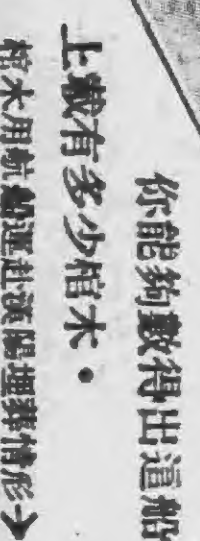 你能夠數得出這船
上載有多少棺木•
棺木用船運赴該埋葬情形→